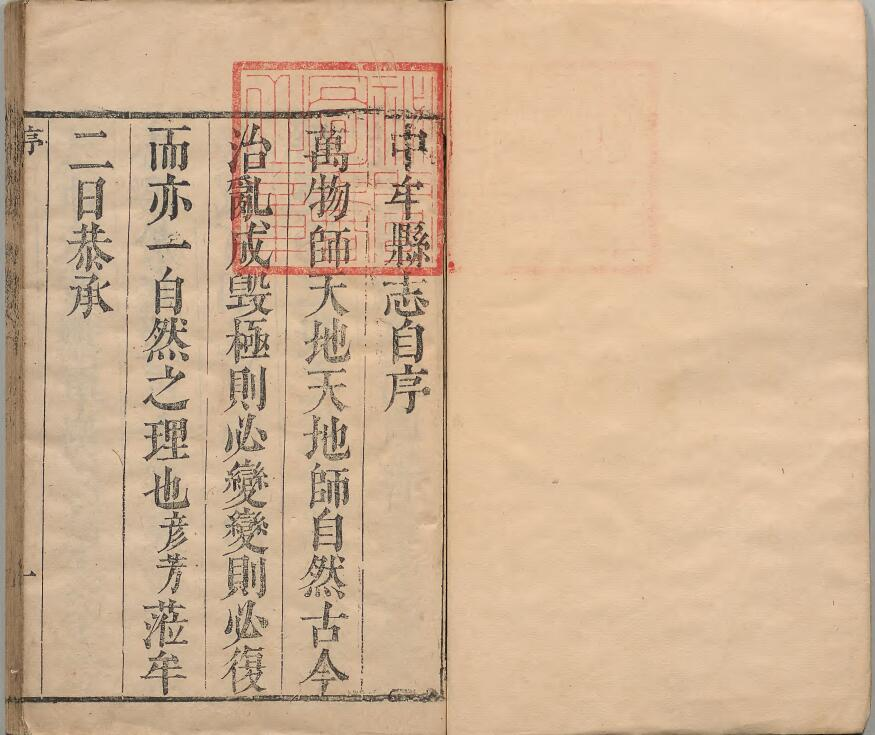 中牟縣志自序
萬物師天地天地師自然古今
治亂成毀極則必變變則必復
而亦一自然之理也彦芳蒞牟
二日恭承
序
一